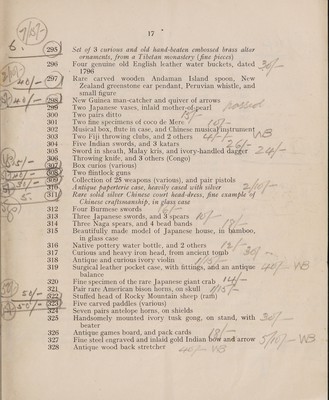 17
295 Set of 3 curious and old hand-beaten embossed brass altar
ornaments, from a Tibetan monastery (fine pieces)
296 Four genuine old English leather water buckets, dated 30/-
1796
297 Rare carved wooden Andaman Island spoon, New
Zealand greenstone ear pendant, Peruvian whistle, and
small figure
298 New Guinea man-catcher and quiver of arrows
299 Two Japanese vases, inlaid mother-of-pearl passed
300 Two pairs ditto
301 Two fine specimens of coco de Mere 10/-
302 Musical box, flute in case, and Chinese musical instrument
303 Two Fiji throwing clubs, and 2 others WB
304 Five Indian swords, and 3 katars
305 Sword in sheath, Malay kris, and ivory-handled dagger 24/-
306 Throwing knife, and 3 others (Congo)
307 Box curios (various)
308 Two flintlock guns
309 Collection of 25 weapons (various), and pair pistols
310 Antique paperterie case, heavily cased with silver
311 Rare solid silver Chinese court head-dress, fine example of
Chinese craftsmanship, in glass case
312 Four Burmese swords
313 Three Japanese swords, and 3 spears 10/-
314 Three Naga spears, and 4 bead bands
315 Beautifully made model of Japanese house, in bamboo,
in glass case
316 Native pottery water bottle, and 2 others
317 Curious and heavy iron head, from ancient tomb 30/-
318 Antique and curious ivory violin
319 Surgical leather pocket case, with fittings, and an antique 40/- WB
balance
320 Fine specimen of the rare Japanese giant crab 14/-
321 Pair rare American bison horns, on skull
322 Stuffed head of Rocky Mountain sheep (ram)
323 Five carved paddles (various)
324 Seven pairs antelope horns, on shields
325 Handsomely mounted ivory tusk gong, on stand, with 30/-
beater
326 Antique games board, and pack cards
327 Fine steel engraved and inlaid gold Indian bow and arrow WB
328 Antique wood back stretcher 40/- WB